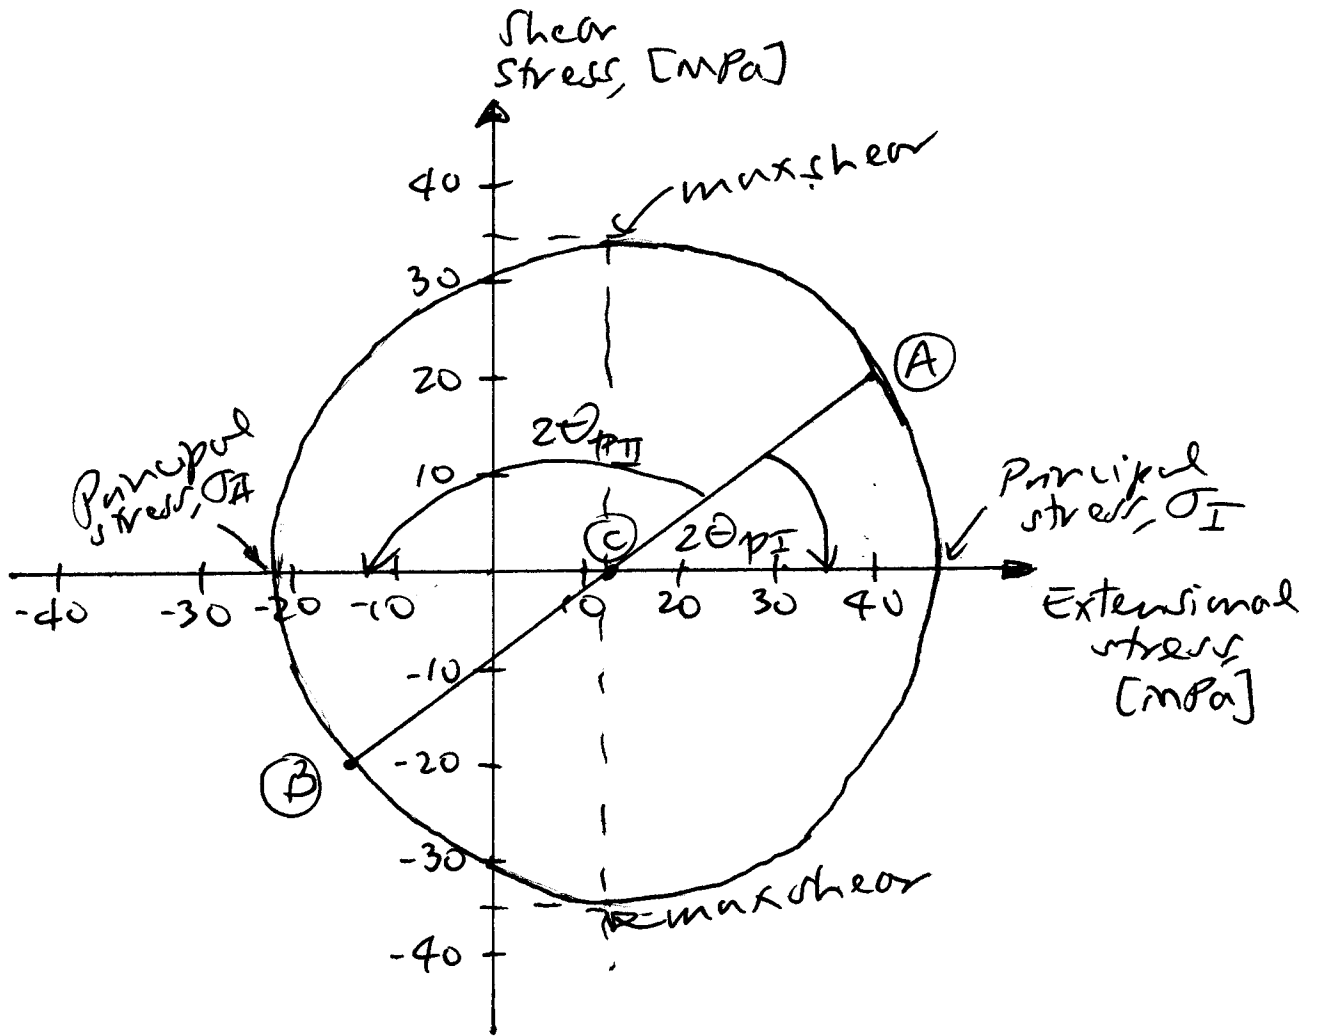 Shear
stress, [MPa]
max shear
40
30
20
10
-10
-20
-30
-40
A
2θpII
Principal
stress, σII
Principal
stress, σI
C
2θpI
-40 -30 -20 -10 10 20 30 40
Extensional
stress,
[MPa]
B
max shear